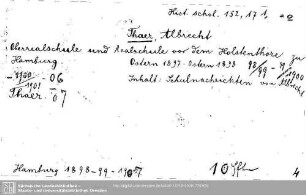 Hist. schol. 152, 17 1, 20
Thaer, Albrecht
Oberrealschule und Realschule vor dem Holstenthore zu
Hamburg. Ostern 1897-Ostern 1898 98/99 - 99/1900
- 1900/1901 - 06 Inhalt: Schulnachrichten von Albrecht
Thaer - 07
Hamburg 1898-99-1907 10 Hfte 4